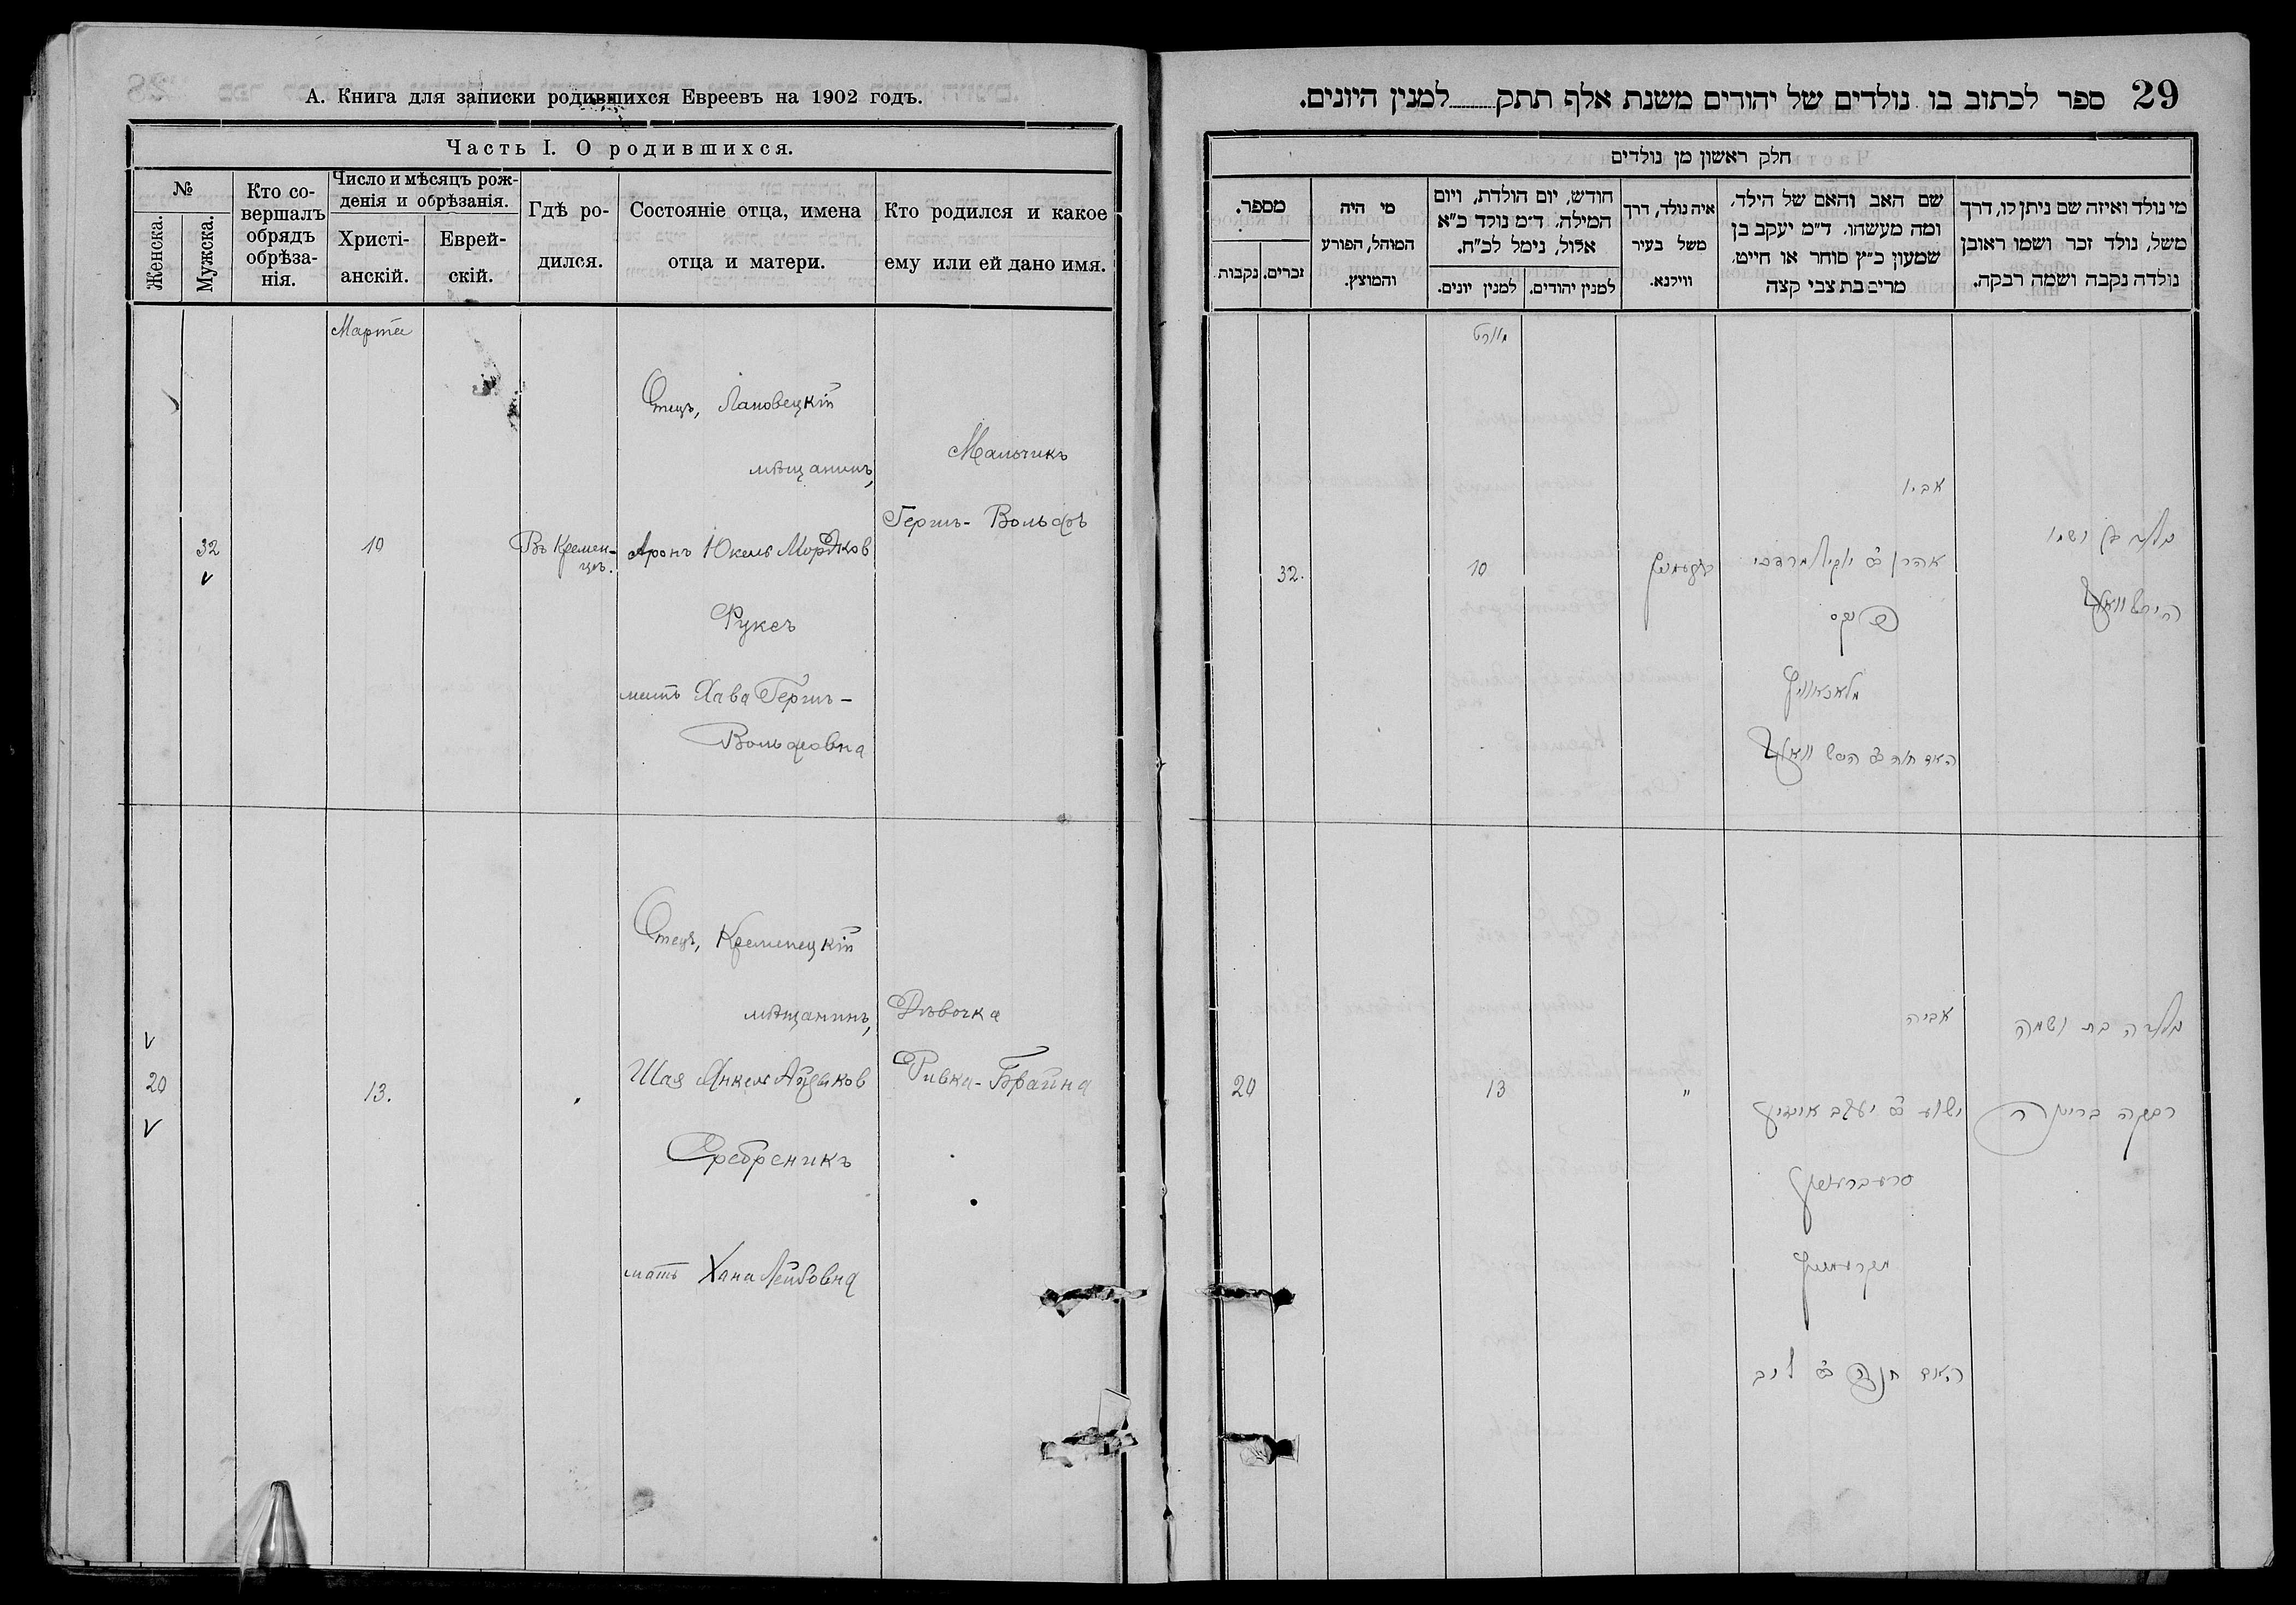 А. Книга для записки родившихся Евреевъ на 1902 годъ.
Часть I. О родившихся.
№
Женска.
Мужска.
Кто со-
вершалъ
обрядъ
обрѣза-
нія.
Число и мѣсяцъ рож-
денія и обрѣзанія.
Христі-
анскій.
Еврей-
скій.
Гдѣ ро-
дился.
Состояніе отца, имена
отца и матери.
Кто родился и какое
ему или ей дано имя.
Марта
32
10
Въ Кремен-
цѣ.
Отецъ, Лановецкій
мѣщанинъ,
Аронъ Юкель Мордков
Руксъ
мать Хава Гершъ-
Вольфовна
Мальчикъ
Гершъ-Вольфъ
20
13.
Отецъ, Кременецкій
мѣщанинъ,
Шая Янкель Айзиков
Сребреникъ
мать Хана Лейбовна
Дѣвочка
Ривка-Брайна
29
ספר לכתוב בו נולדים של יהודים משנת אלף תתק למנין היונים.
חלק ראשון מן נולדים
מי נולד ואיזה שם ניתן לו, דרך
משל, נולד זכר ושמו ראובן
נולדה נקבה ושמה רבקה.
שם האב והאם של הילד,
ומה מעשהו. ד"מ יעקב בן
שמעון כ"ץ סוחר או חייט,
מרים בת צבי קצה
איה נולד, דרך
משל בעיר
ווילנא.
חודש, יום הולדת, ויום
המילה. ד"מ נולד כ"א
אלול, נימל לכ"ח.
למנין יהודים.
למנין יונים.
מי היה
המוהל, הפורע
והמוצץ.
מספר.
זכרים.
נקבות
מארט
נולד בן ושמו
הירש וואלף
אביו
אהרן יוקיל מרדכי
האם חוה הירש וואלף
10
32.
נולדה בת ושמה
רבקה בריינה
אביה
ישעי' יעקב אייזיק
האם חנה ליב
"
13
20